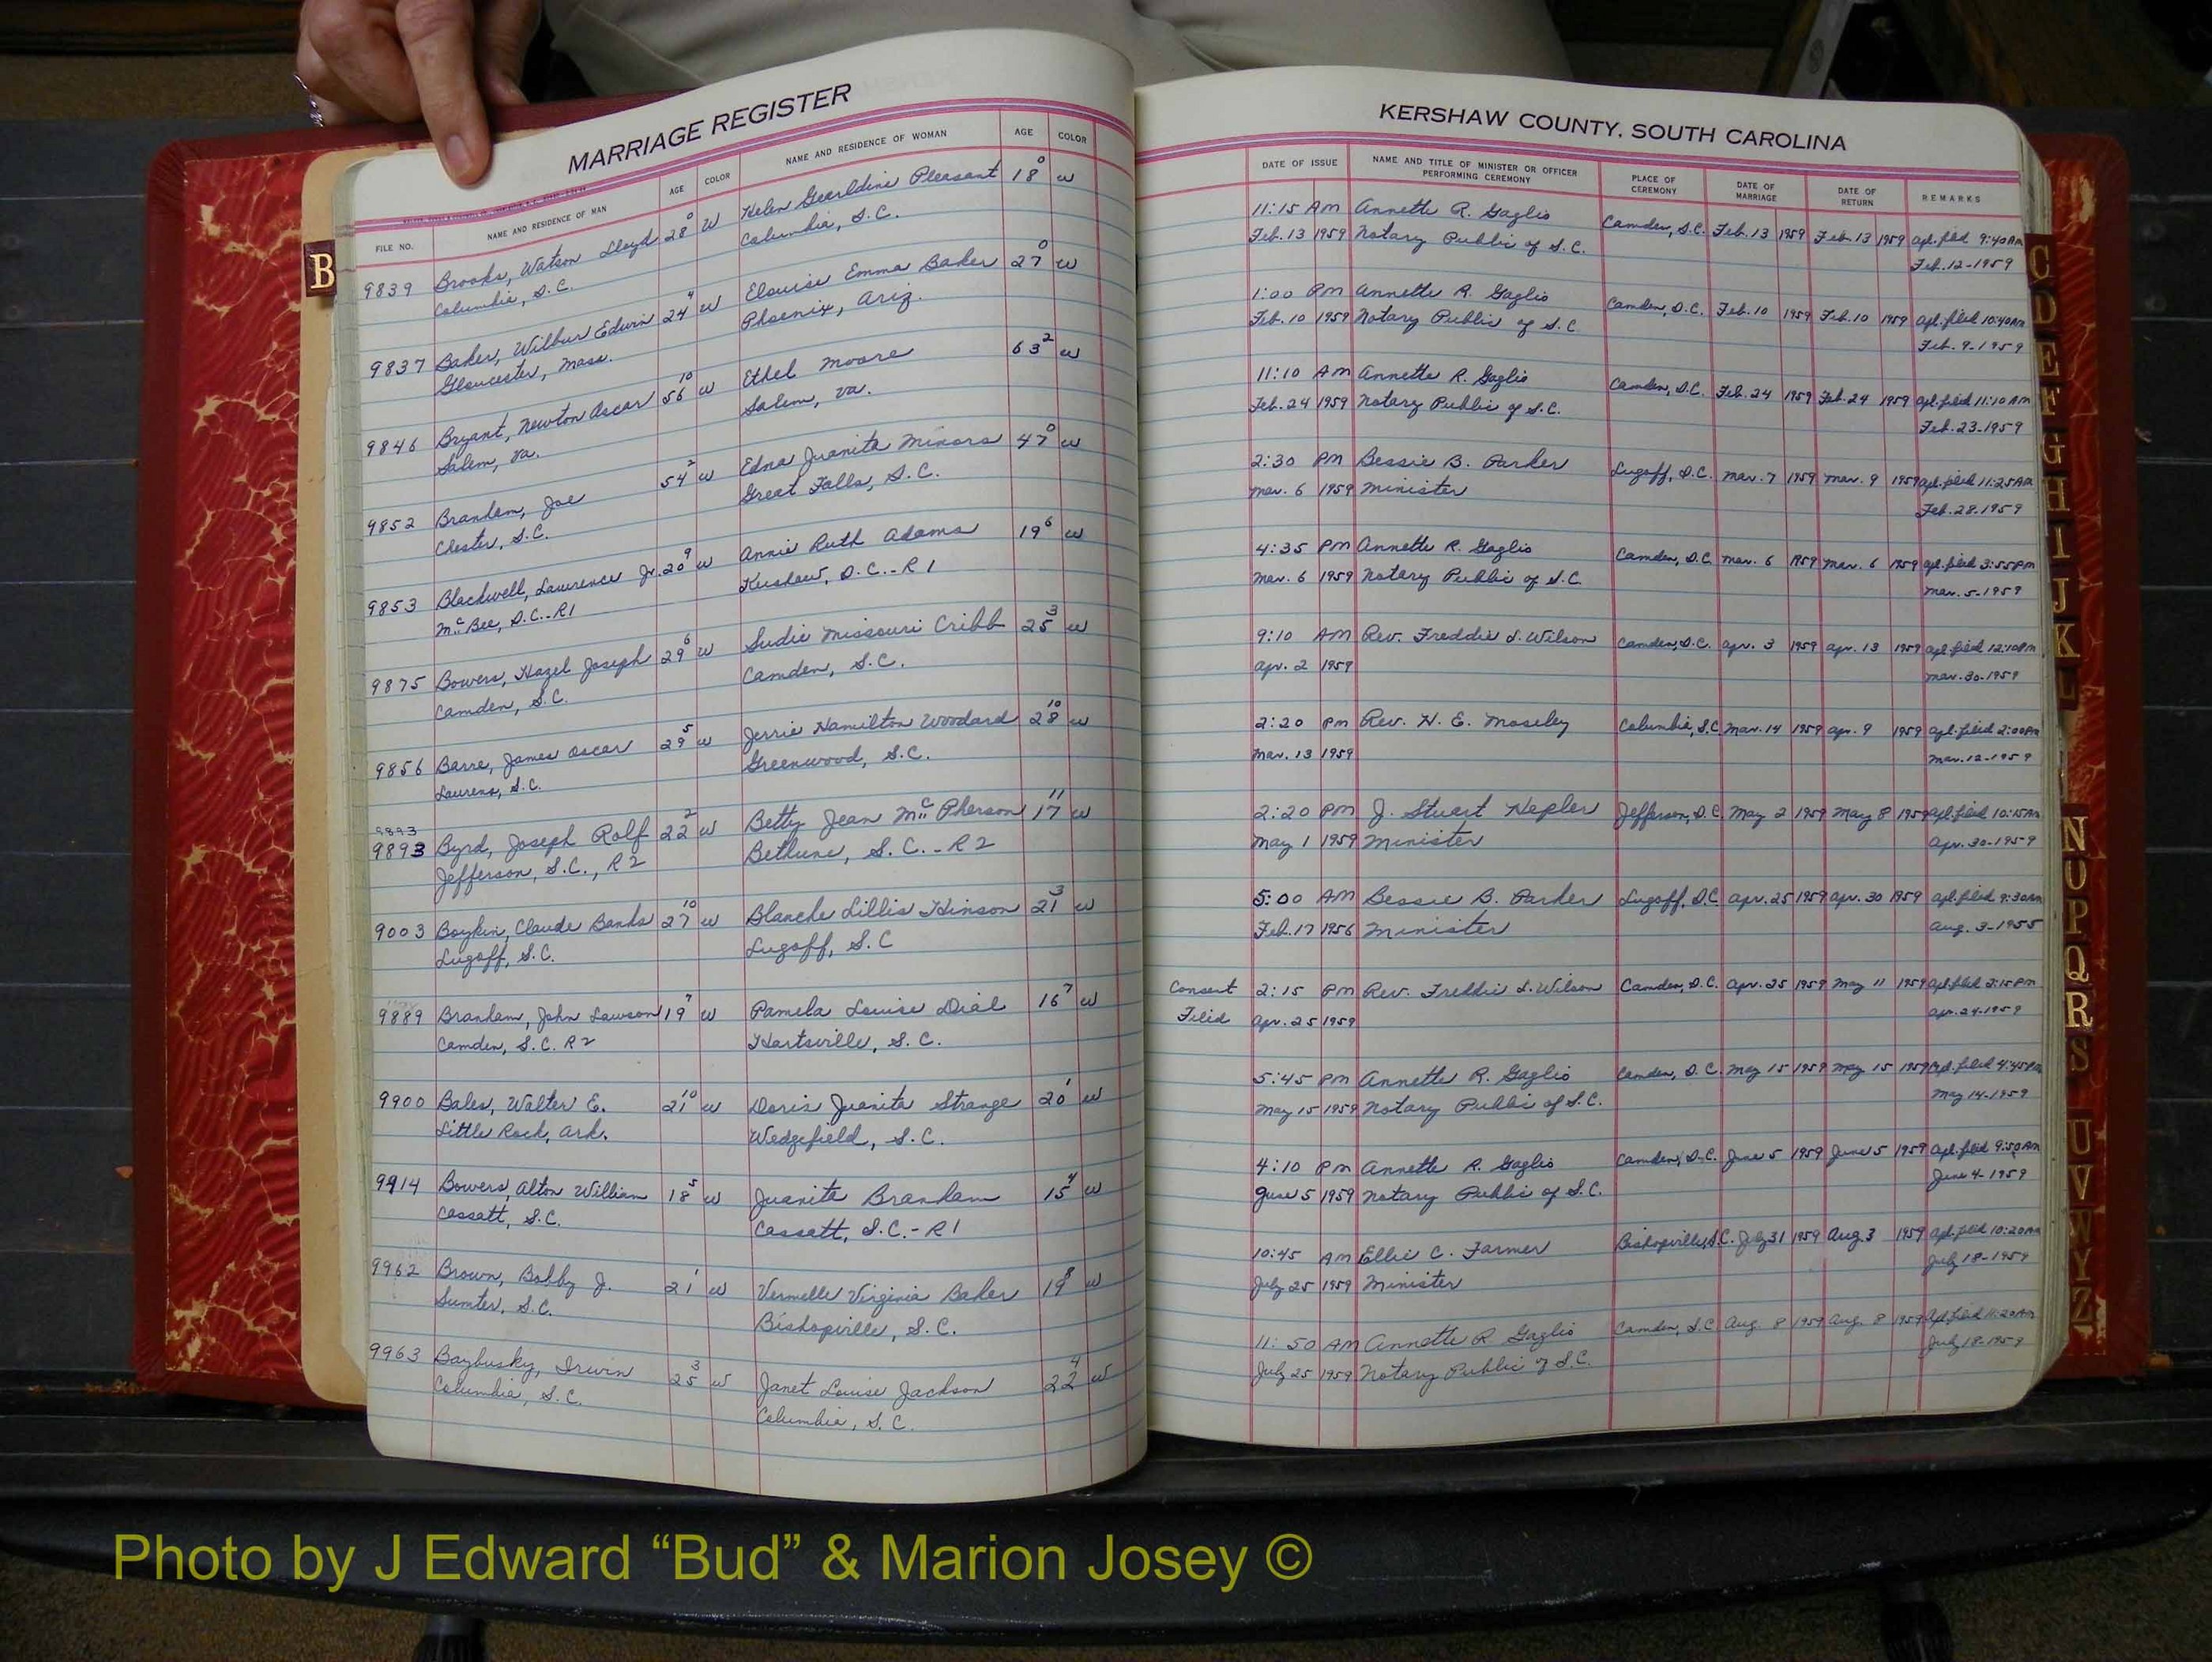 MARRIAGE REGISTER
FILE NO. NAME AND RESIDENCE OF MAN AGE COLOR NAME AND RESIDENCE OF WOMAN AGE COLOR
B
9839 Brooks, Watson Lloyd 28 0 W Helen Gearldine Pleasant 18 0 W
Columbia, S.C. Columbia, S.C.
9837 Baker, Wilbur Edwin 24 4 W Elouise Emma Baker 27 0 W
Gloucester, Mass. Phoenix, Ariz.
9846 Bryant, Newton Oscar 56 10 W Ethel Moore 63 2 W
Salem, Va. Salem, Va.
9852 Branham, Joe 54 2 W Edna Juanita Minors 47 0 W
Chester, S.C. Great Falls, S.C.
9853 Blackwell, Lawrence Jr. 20 9 W Annie Ruth Adams 19 6 W
McBee, S.C.-R1 Kershaw, S.C.-R1
9875 Bowers, Hazel Joseph 29 6 W Sudie Missouri Cribb 25 3 W
Camden, S.C. Camden, S.C.
9856 Barre, James Oscar 29 5 W Jerrie Hamilton Woodard 28 10 W
Laurens, S.C. Greenwood, S.C.
9893
9893 Byrd, Joseph Rolf 22 2 W Betty Jean McPherson 17 11 W
Jefferson, S.C., R2 Bethune, S.C.-R2
9003 Boykin, Claude Banks 27 10 W Blanche Lillis Hinson 21 3 W
Lugoff, S.C. Lugoff, S.C
9889 Branham, John Lawson 19 7 W Pamela Louise Dial 16 7 W
Camden, S.C. R2 Hartsville, S.C.
9900 Bales, Walter E. 21 10 W Doris Juanita Strange 20 1 W
Little Rock, Ark. Wedgefield, S.C.
9914 Bowers, Alton William 18 5 W Juanita Branham 15 4 W
Cassatt, S.C. Cassatt, S.C.-R1
9962 Brown, Bobby J. 21 1 W Vermelle Virginia Baker 19 8 W
Sumter, S.C. Bishopville, S.C.
9963 Baybusky, Irwin 25 3 W Janet Louise Jackson 22 4 W
Columbia, S.C. Columbia, S.C.
KERSHAW COUNTY, SOUTH CAROLINA
DATE OF ISSUE NAME AND TITLE OF MINISTER OR OFFICER PERFORMING CEREMONY PLACE OF CEREMONY DATE OF MARRIAGE DATE OF RETURN REMARKS
11:15 AM Annette R. Gaglio Camden, S.C. Feb. 13 1959 Feb. 13 1959 Apl. filed 9:40 AM
Feb. 13 1959 Notary Public of S.C. Feb. 12-1959
1:00 PM Annette R. Gaglio Camden, S.C. Feb. 10 1959 Feb. 10 1959 Apl. filed 10:40 AM
Feb. 10 1959 Notary Public of S.C Feb. 9-1959
11:10 AM Annette R. Gaglio Camden, S.C. Feb. 24 1959 Feb. 24 1959 Apl. filed 11:10 AM
Feb. 24 1959 Notary Public of S.C. Feb. 23-1959
2:30 PM Bessie B. Parker Lugoff, S.C. Mar. 7 1959 Mar. 9 1959 Apl. filed 11:25 AM
Mar. 6 1959 Minister Feb. 28-1959
4:35 PM Annette R. Gaglio Camden, S.C Mar. 6 1959 Mar. 6 1959 Apl. filed 3:55 PM
Mar. 6 1959 Notary Public of S.C Mar. 5-1959
9:10 AM Rev. Freddie L. Wilson Camden, S.C. Apr. 3 1959 Apr. 13 1959 Apl. filed 12:10 PM
Apr. 2 1959 Mar. 30-1959
2:20 PM Rev. H. E. Moseley Columbia, S.C Mar. 14 1959 Apr. 9 1959 Apl. filed 2:00 PM
Mar. 13 1959 Mar. 12-1959
2:20 PM J. Stuart Hepler Jefferson, S.C May 2 1959 May 8 1959 Apl. filed 10:15 AM
May 1 1959 Minister Apr. 30-1959
5:00 AM Bessie B. Parker Lugoff, S.C. Apr. 25 1959 Apr. 30 1959 Apl. filed 9:30 AM
Feb. 17 1956 Minister Aug. 3-1955
Consent 2:15 PM Rev. Freddie L. Wilson Camden, S.C. Apr. 25 1959 May 11 1959 Apl. filed 2:15 PM
Filed Apr. 25 1959 Apr. 24-1959
5:45 PM Annette R. Gaglio Camden, S.C. May 15 1959 May 15 1959 Apl. filed 4:45 PM
May 15 1959 Notary Public of S.C. May 14-1959
4:10 PM Annette R. Gaglio Camden, S.C. June 5 1959 June 5 1959 Apl. filed 9:50 AM
June 5 1959 Notary Public of S.C. June 4-1959
10:45 AM Ellie C. Farmer Bishopville, S.C. July 31 1959 Aug. 3 1959 Apl. filed 10:20 AM
July 25 1959 Minister July 18-1959
11:50 AM Annette R. Gaglio Camden, S.C Aug. 8 1959 Aug. 8 1959 Apl. filed 11:20 AM
July 25 1959 Notary Public of S.C. July 18-1959
C
D
E
F
G
H
I
J
K
L
N
O
P
Q
R
S
U
V
W
Y
Z
Photo by J Edward “Bud” & Marion Josey ©